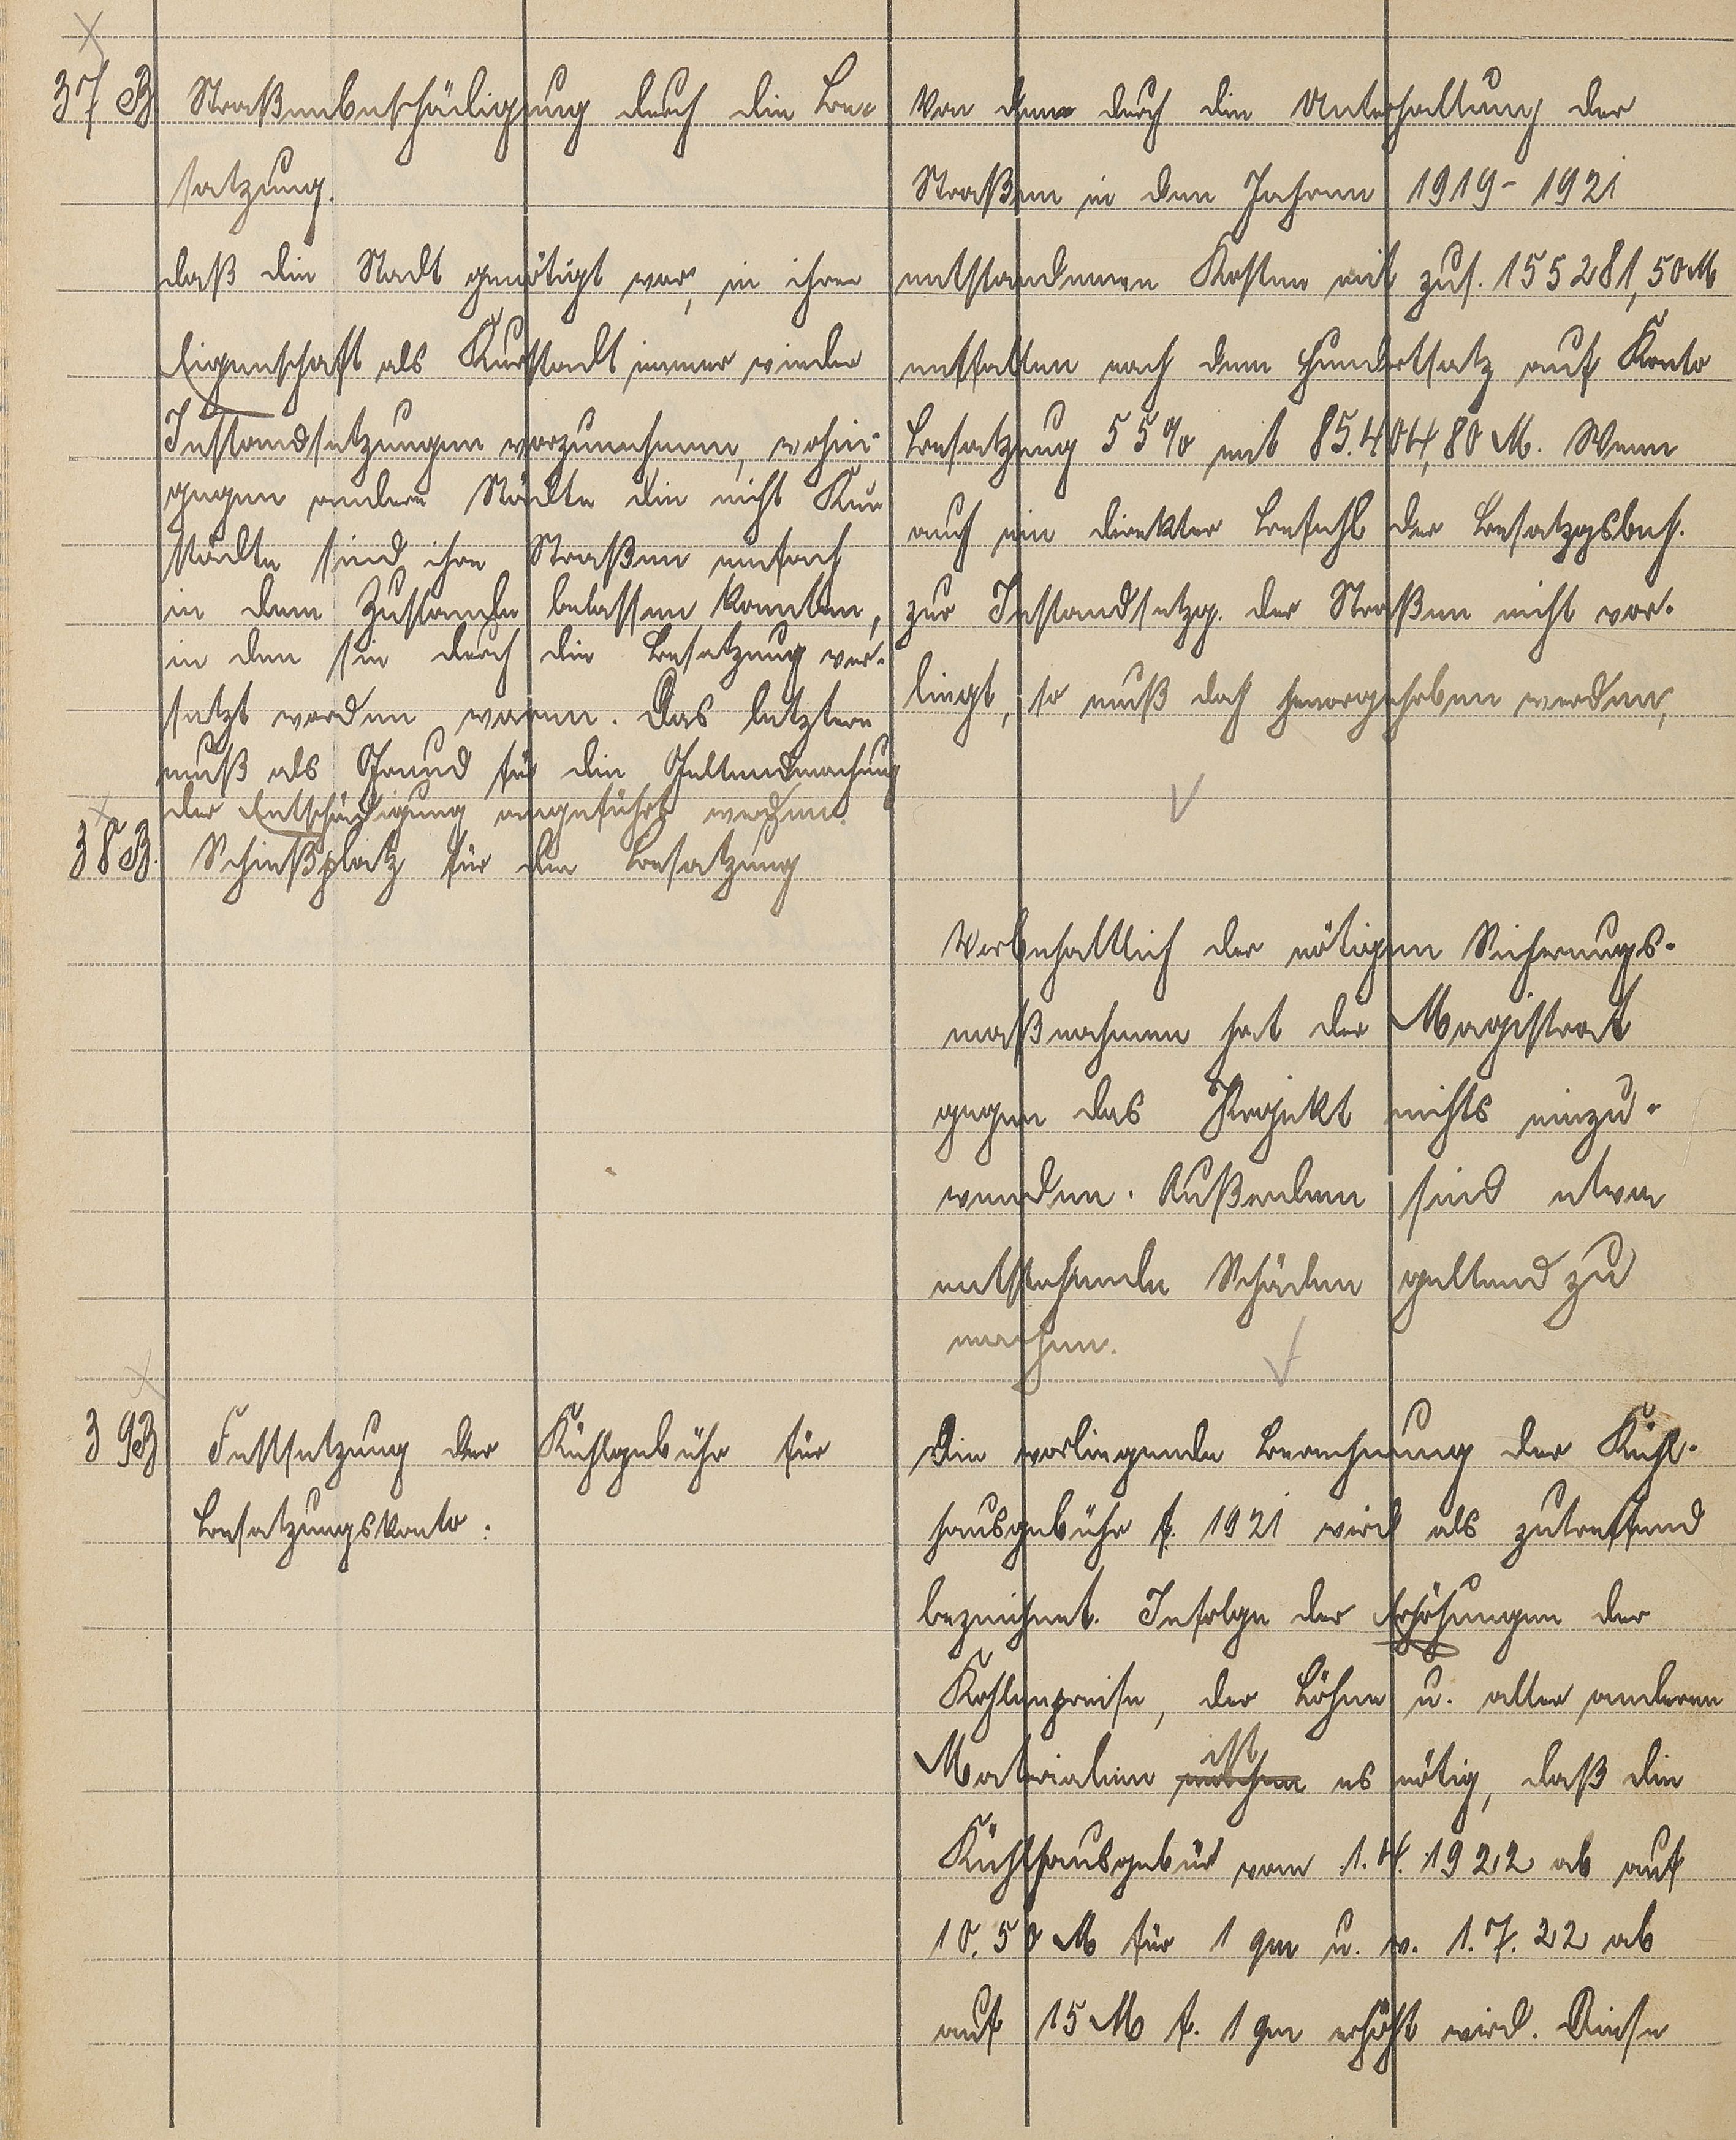 37 B Straßenbeschädigung durch die Be-
satzung.
Von den durch die Unterhaltung der
Straßen in den Jahren 1919 - 1921
entstandenen Kosten mit zus. 155281,50 M
entfallen nach dem Hundertsatz auf Konto
Besatzung 55% mit 85.404,80 M. Wenn
auch ein direkter Befehl der Besatzgsbeh.
zur Instandsetzg. der Straßen nicht vor-
liegt, so muß doch hervorgehoben werden,
daß die Stadt genötigt war, in ihrer
Eigenschaft als Kurstadt immer wieder
Instandsetzungen vorzunehmen, wohin-
gegen andere Städte die nicht Kur-
städte sind ihre Straßen einfach
in dem Zustande belassen konnten,
in den sie durch die Besatzung ver-
setzt worden waren. Das letztere
muß als Grund für die Geltendmachung
der Entschädigung angeführt werden.
38 B. Schießplatz für die Besatzung
Vorbehaltlich der nötigen Sicherungs-
maßnahmen hat der Magistrat
gegen das Projekt nichts einzu-
wenden. Außerdem sind etwa
entstehende Schäden geltend zu
machen.
39 B Festsetzung der Kühlgebühr für
Besatzungskonto.
Die vorliegende Berechnung der Kühl-
hausgebühr f. 1921 wird als zutreffend
bezeichnet. Infolge der Erhöhungen der
Kohlenpreise, der Löhne u. aller anderen
Materialien machen ist es nötig, daß die
Kühlhausgebür vom 1.4.1922 ab auf
10.50 M für 1 qm u. v. 1.7.22 ab
auf 15 M f. 1 qm erhöht wird. Diese